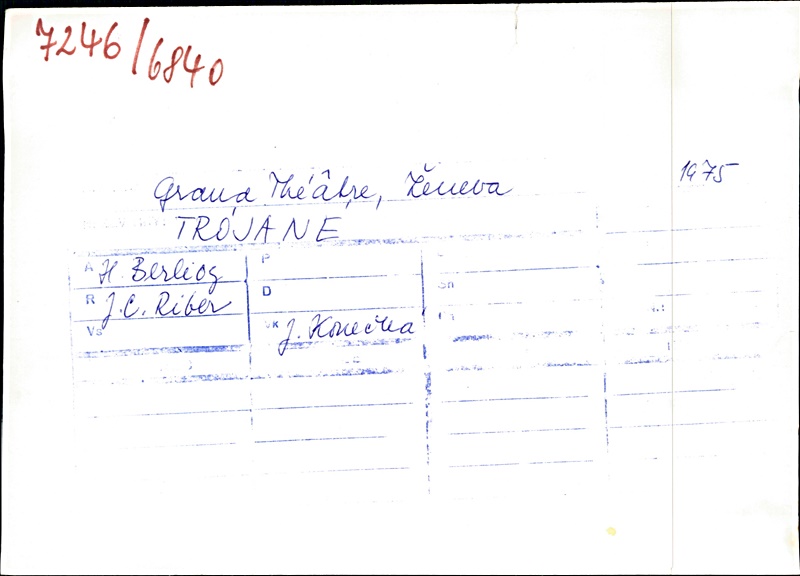 7246/6840
Grand Théâtre, Ženeva
1975
TRÓJANE
A H. Berlioz
P
R J.C. Riber
D
Sn
Vs
VK J. Konečna